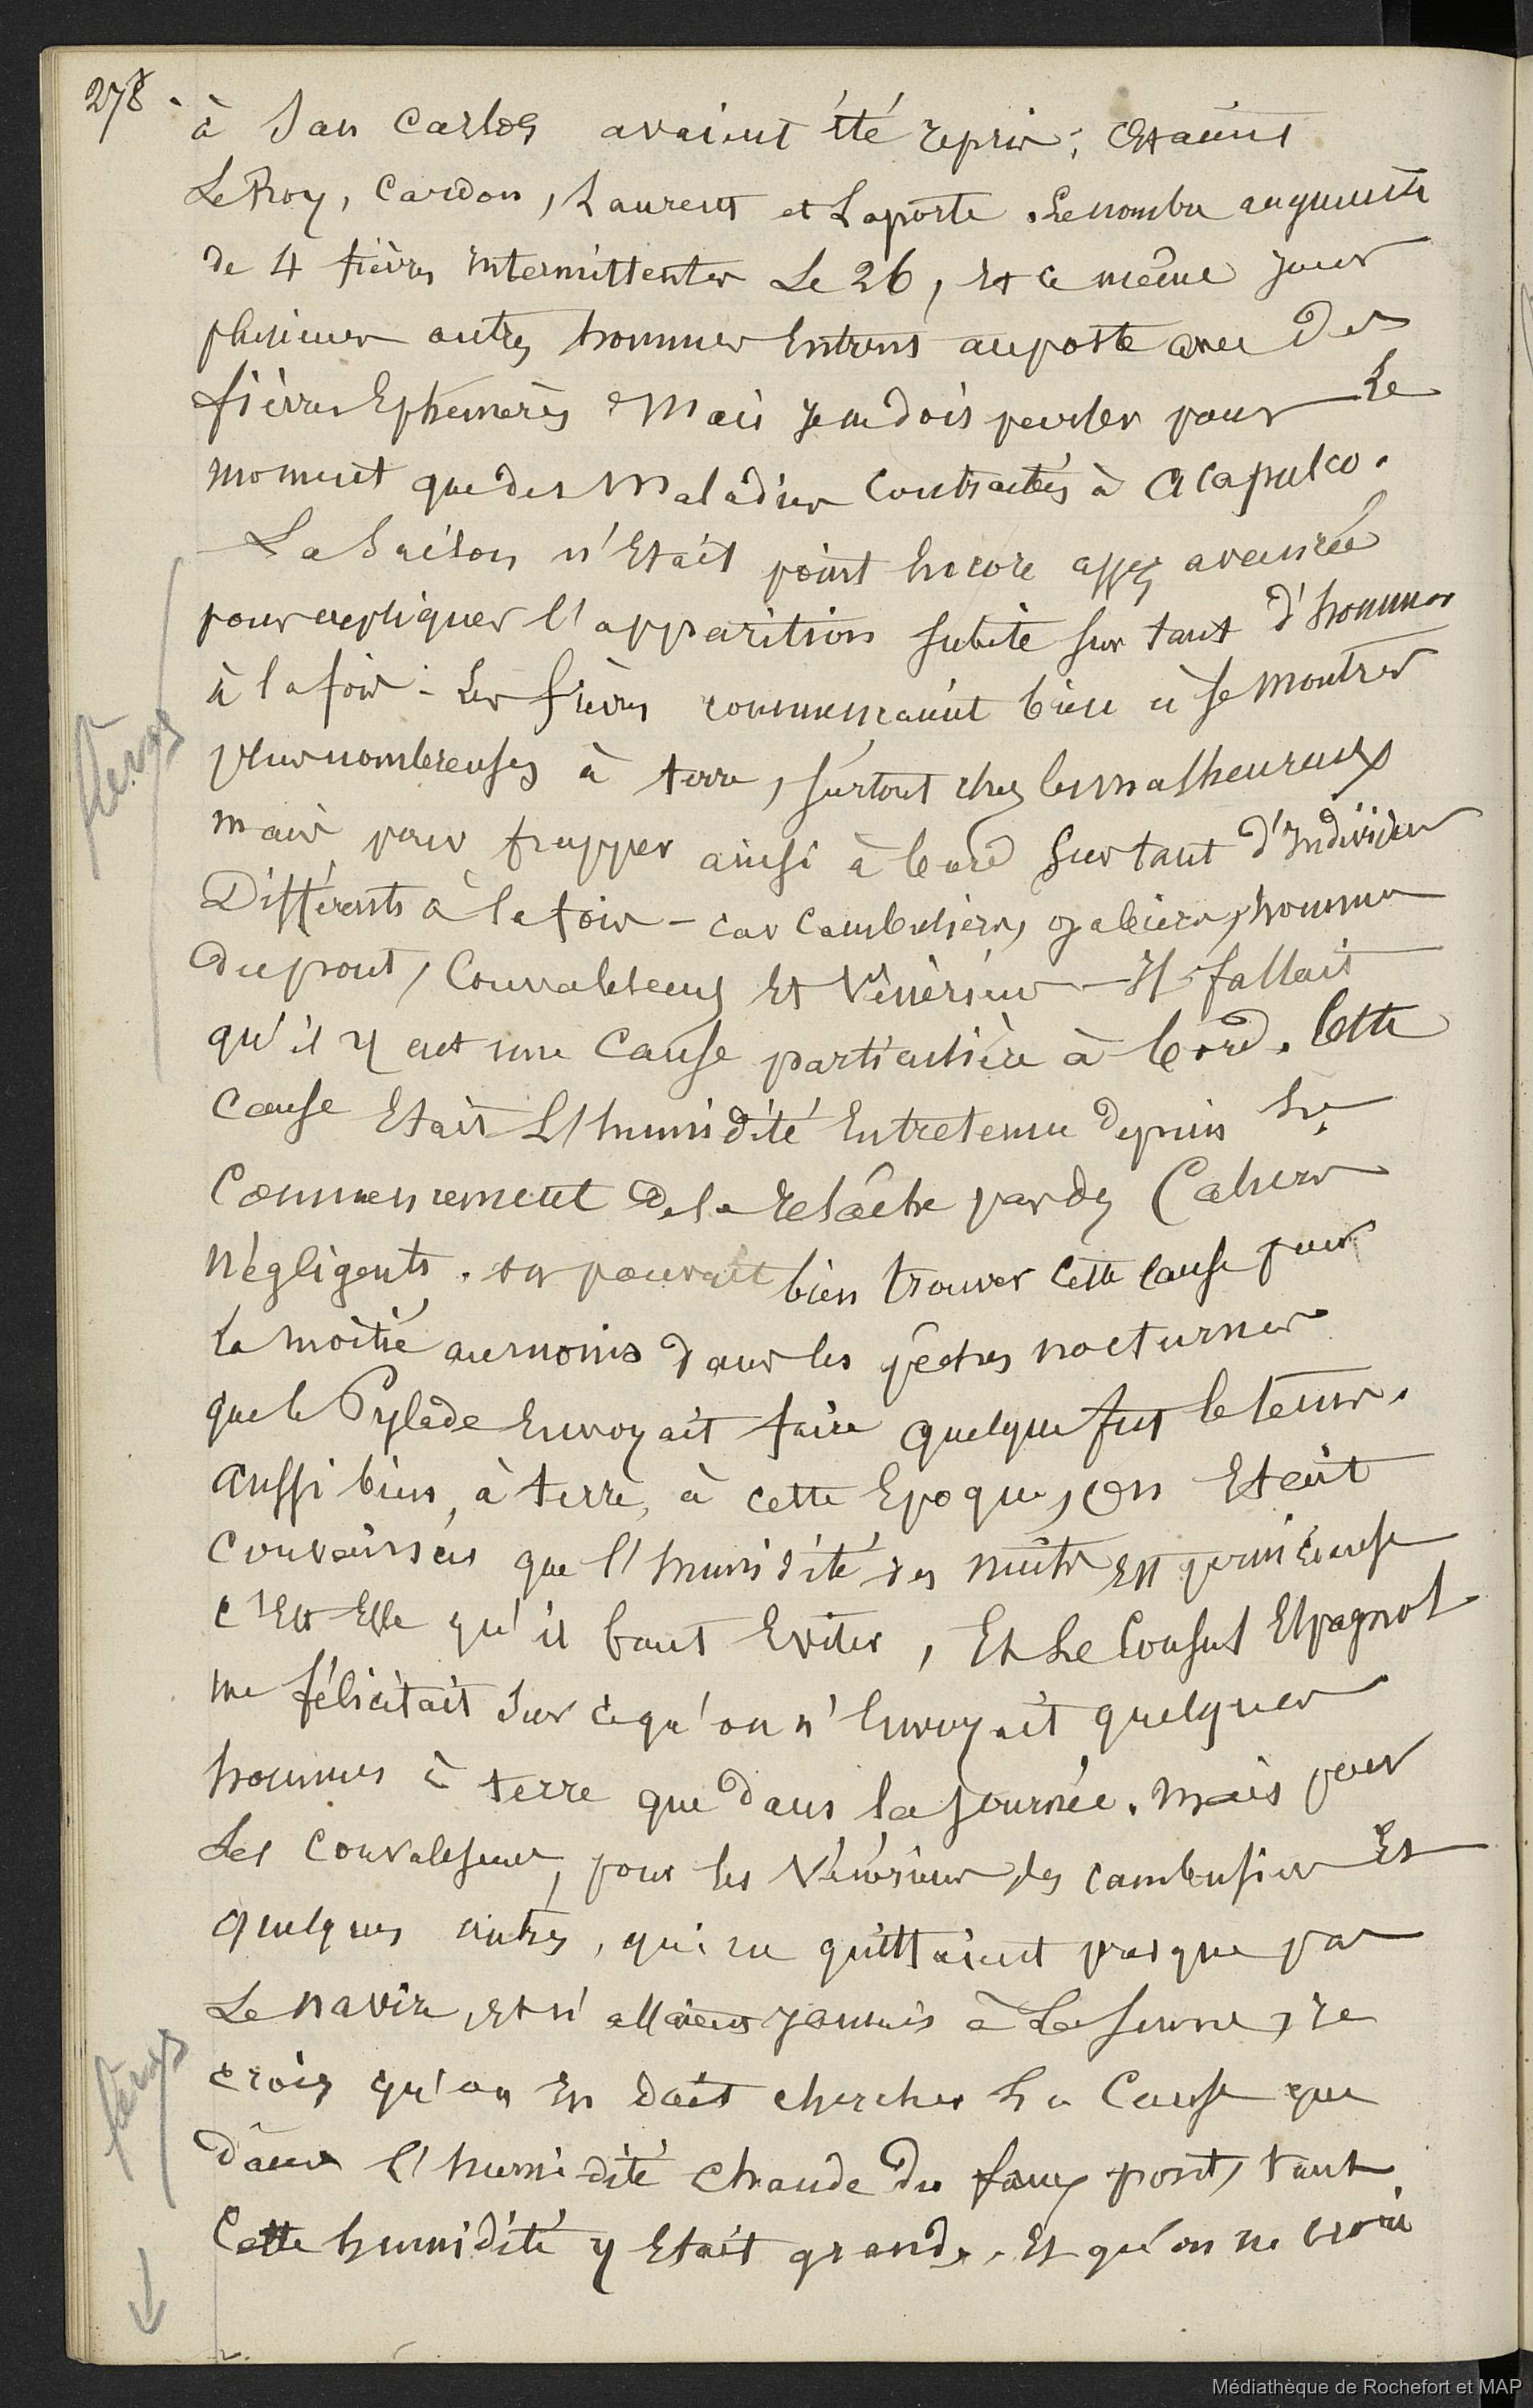 278.
à San Carlos avaient été repris; Etaient
LeRoy, Cardon, Laurent et Laporte. Le nombre augmente
de 4 fièvres intermittentes Le 26, Et ce même jour
plusieurs autres hommes Entrent au poste avec des
fièvres Ephémères Mais je ne dois parler pour Le
moment que des Maladies Contractées à Acapulco.
La Saison n'Etait point Encore assez avancée
pour expliquer l'apparition subite sur tant d'hommes
à la fois. Les fièvres commençaient bien à se montrer
plus nombreuses à terre, surtout chez les malheureux
mais pour frapper ainsi à bord sur tant d'Individus
Différents à la fois - car Cambusiers, gabiers, hommes
du pont, Convalescens Et Vénériens - Il fallait
qu'il y eut une Cause particulière à bord. Cette
Cause Etait L'humidité Entretenue depuis Le
Commencement de la relâche par des Caliers
négligents. on pouvait bien trouver cette cause pour
La moitié au moins dans les pêches nocturnes
que le Pylade Envoyait faire quelque fut le tems.
Aussi bien, à terre, à cette Epoque, on Etait
Convaincus que l'humidité des nuits Est pernicieuse
C'Est Elle qu'il faut Eviter, Et Le Consul Espagnol
me félicitait sur ce qu'on n'Envoyait quelques
hommes à terre que dans la journée. Mais pour
Les Convalescens, pour les Vénériens, les cambusiers Et
quelques autres, qui ne quittaient presque pas
Le navire, Et n'allaient jamais à La senne, je
crois qu'on En doit chercher La Cause que
dans L'humidité chaude du faux pont, tant
Cette humidité y Etait grande. Et qu'on ne croie
fièvres
fièvres
Médiathèque de Rochefort et MAP